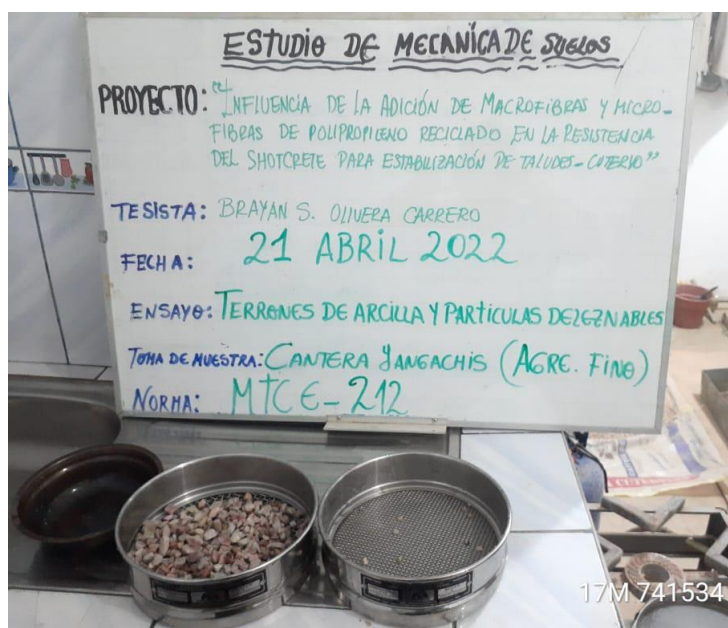 ESTUDIO DE MECÁNICA DE SUELOS
PROYECTO: "INFLUENCIA DE LA ADICIÓN DE MACROFIBRAS Y MICRO-
FIBRAS DE POLIPROPILENO RECICLADO EN LA RESISTENCIA
DEL SHOTCRETE PARA ESTABILIZACIÓN DE TALUDES - CUTERVO"
TESISTA: BRAYAN S. OLIVERA CARRERO
FECHA: 21 ABRIL 2022
ENSAYO: TERRONES DE ARCILLA Y PARTÍCULAS DELEZNABLES
TOMA DE MUESTRA: CANTERA YANGACHIS (AGRE. FINO)
NORMA: MTC E-212
17M 741534